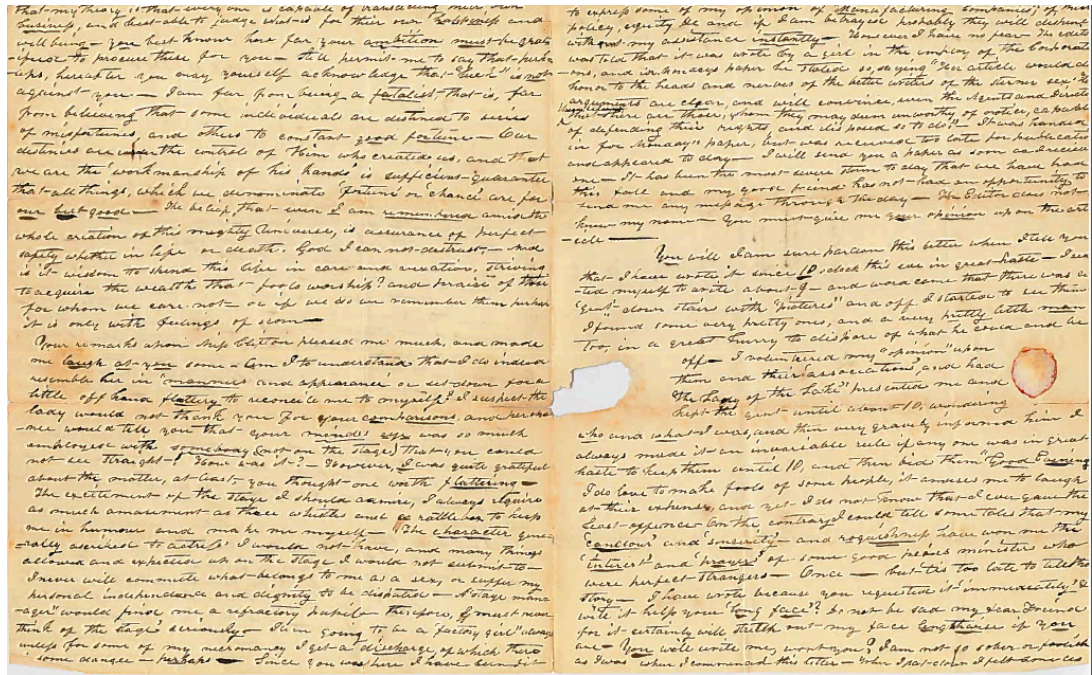 that my theory is that every one is capable of transacting their own
business, and best able to judge what is for their own happiness and
well being – you best know how far your ambition must be grat-
ified to procure these for you – Still permit me to say that perh-
aps, hereafter you may yourself acknowledge that "Luck" is not
against you – I am far from being a fatalist that is, far
from believing that some individuals are destined to series
of misfortunes, and others to constant good fortune – Our
destinies are under the control of Him who created us, and that
we are the 'workmanship of his hands' is sufficient guarantee
that all things, which we denominate 'fortune' or 'chance' are for
our best good – The belief, that even I am remembered amid the
whole creation of this mighty Universe, is assurance of perfect
safety whether in life or death. God I can not distrust, – And
is it wisdom to spend this life in care and vexation, striving
to acquire the wealth that "fools worship" and praise of those
for whom we care not – or if we do we remember them perhaps
it is only with feelings of scorn –
Your remarks upon Miss Clifton pleased me much, and made
me laugh at you some – Am I to understand that I do indeed
resemble her in "manners and appearance" or set down for a
little off hand flattery to reconcile me to myself? I suspect the
lady would not thank you for your comparisons, and
me would tell you that your was so much
employed with somebody (not on the stage) that you could
not see straight – How was it? – However, I was quite grateful
about the matter, at least, you thought one worth flattering –
The excitement of the stage I should admire, I always require
as much amusement as three whistles and a rattle box to keep
me in humour and make me myself – The character gene-
rally ascribed to 'actress' I would not have, and many things
allowed and expected upon the stage I would not submit to –
I never will commit what belongs to me as a sex, or suffer my
personal independence and dignity to be disputed – A stage man-
ager would find me a refractory pupil – therefore, I must never
think of the "stage" seriously – I am going to be a "factory girl" always
unless for some of my necromancy I get a discharge, of which there
some danger – perhaps – Since you was here I have been
to express some of my opinion of "Manufacturing Companies", of their
policy, equity &c and if I am betrayed probably they will dispense
with my assistance instantly – However I have no fear – The editor
was told that it was wrote by a girl in the employ of the Corporat-
ions, and in Mondays paper he stated so, saying "Her article would do
honor to the heads and nerves of the better writers of the sterner sex". "Her
arguments are clear, and will convince, even the Agents and Directors
that there are those, whom they may deem unworthy of notice, capable
of defending their rights, and disposed so to do". It was handed
in for Monday's paper, but was received too late for publication
and appeared to day – I will send you a paper as soon as I receive
one – It has been the most severe storm to day that we have had
this fall and my good friend has not had an opportunity to
send me any message through the day – The Editor does not
know my name – You must give me your opinion upon the art-
-icle –
You will I am sure pardon this letter when I tell you
that I have wrote it since 10 o'clock this eve in great haste – I sea-
ted myself to write about 9 – and word came that there was a
"Gent" down stairs with "pictures" and off I started to see them
I found some very pretty ones, and a very pretty little man
too, in a great hurry to dispose of what he could and be
off – I volunteered my "opinion" upon
them and their 'associations', and had
'The Lady of the Lake' presented me and
kept the gent until about 10, wondering
who and what I was, and then very gravely informed him I
always made it an invariable rule if any one was in great
haste to keep them until 10, and then bid them "Good Evening"
I do love to make fools of some people, it amuses me to laugh
at their expense, and yet I do not know that I ever gave the
least offence On the contrary I could tell some tales that my
'candour' and sincerity – and roguishness have won me the
'interest' and 'prayers' of some good pious ministers who
were perfect strangers – Once – but tis too late to tell the
story – I have wrote because you requested it 'immediately' &
'will it help your "long face"? Do not be sad my dear Friend
for it certainly will stretch out my face lengthwise if you
are – You will write me, wont you? I am not so sober or foolish
as I was when I commenced this letter – When I sat down I felt